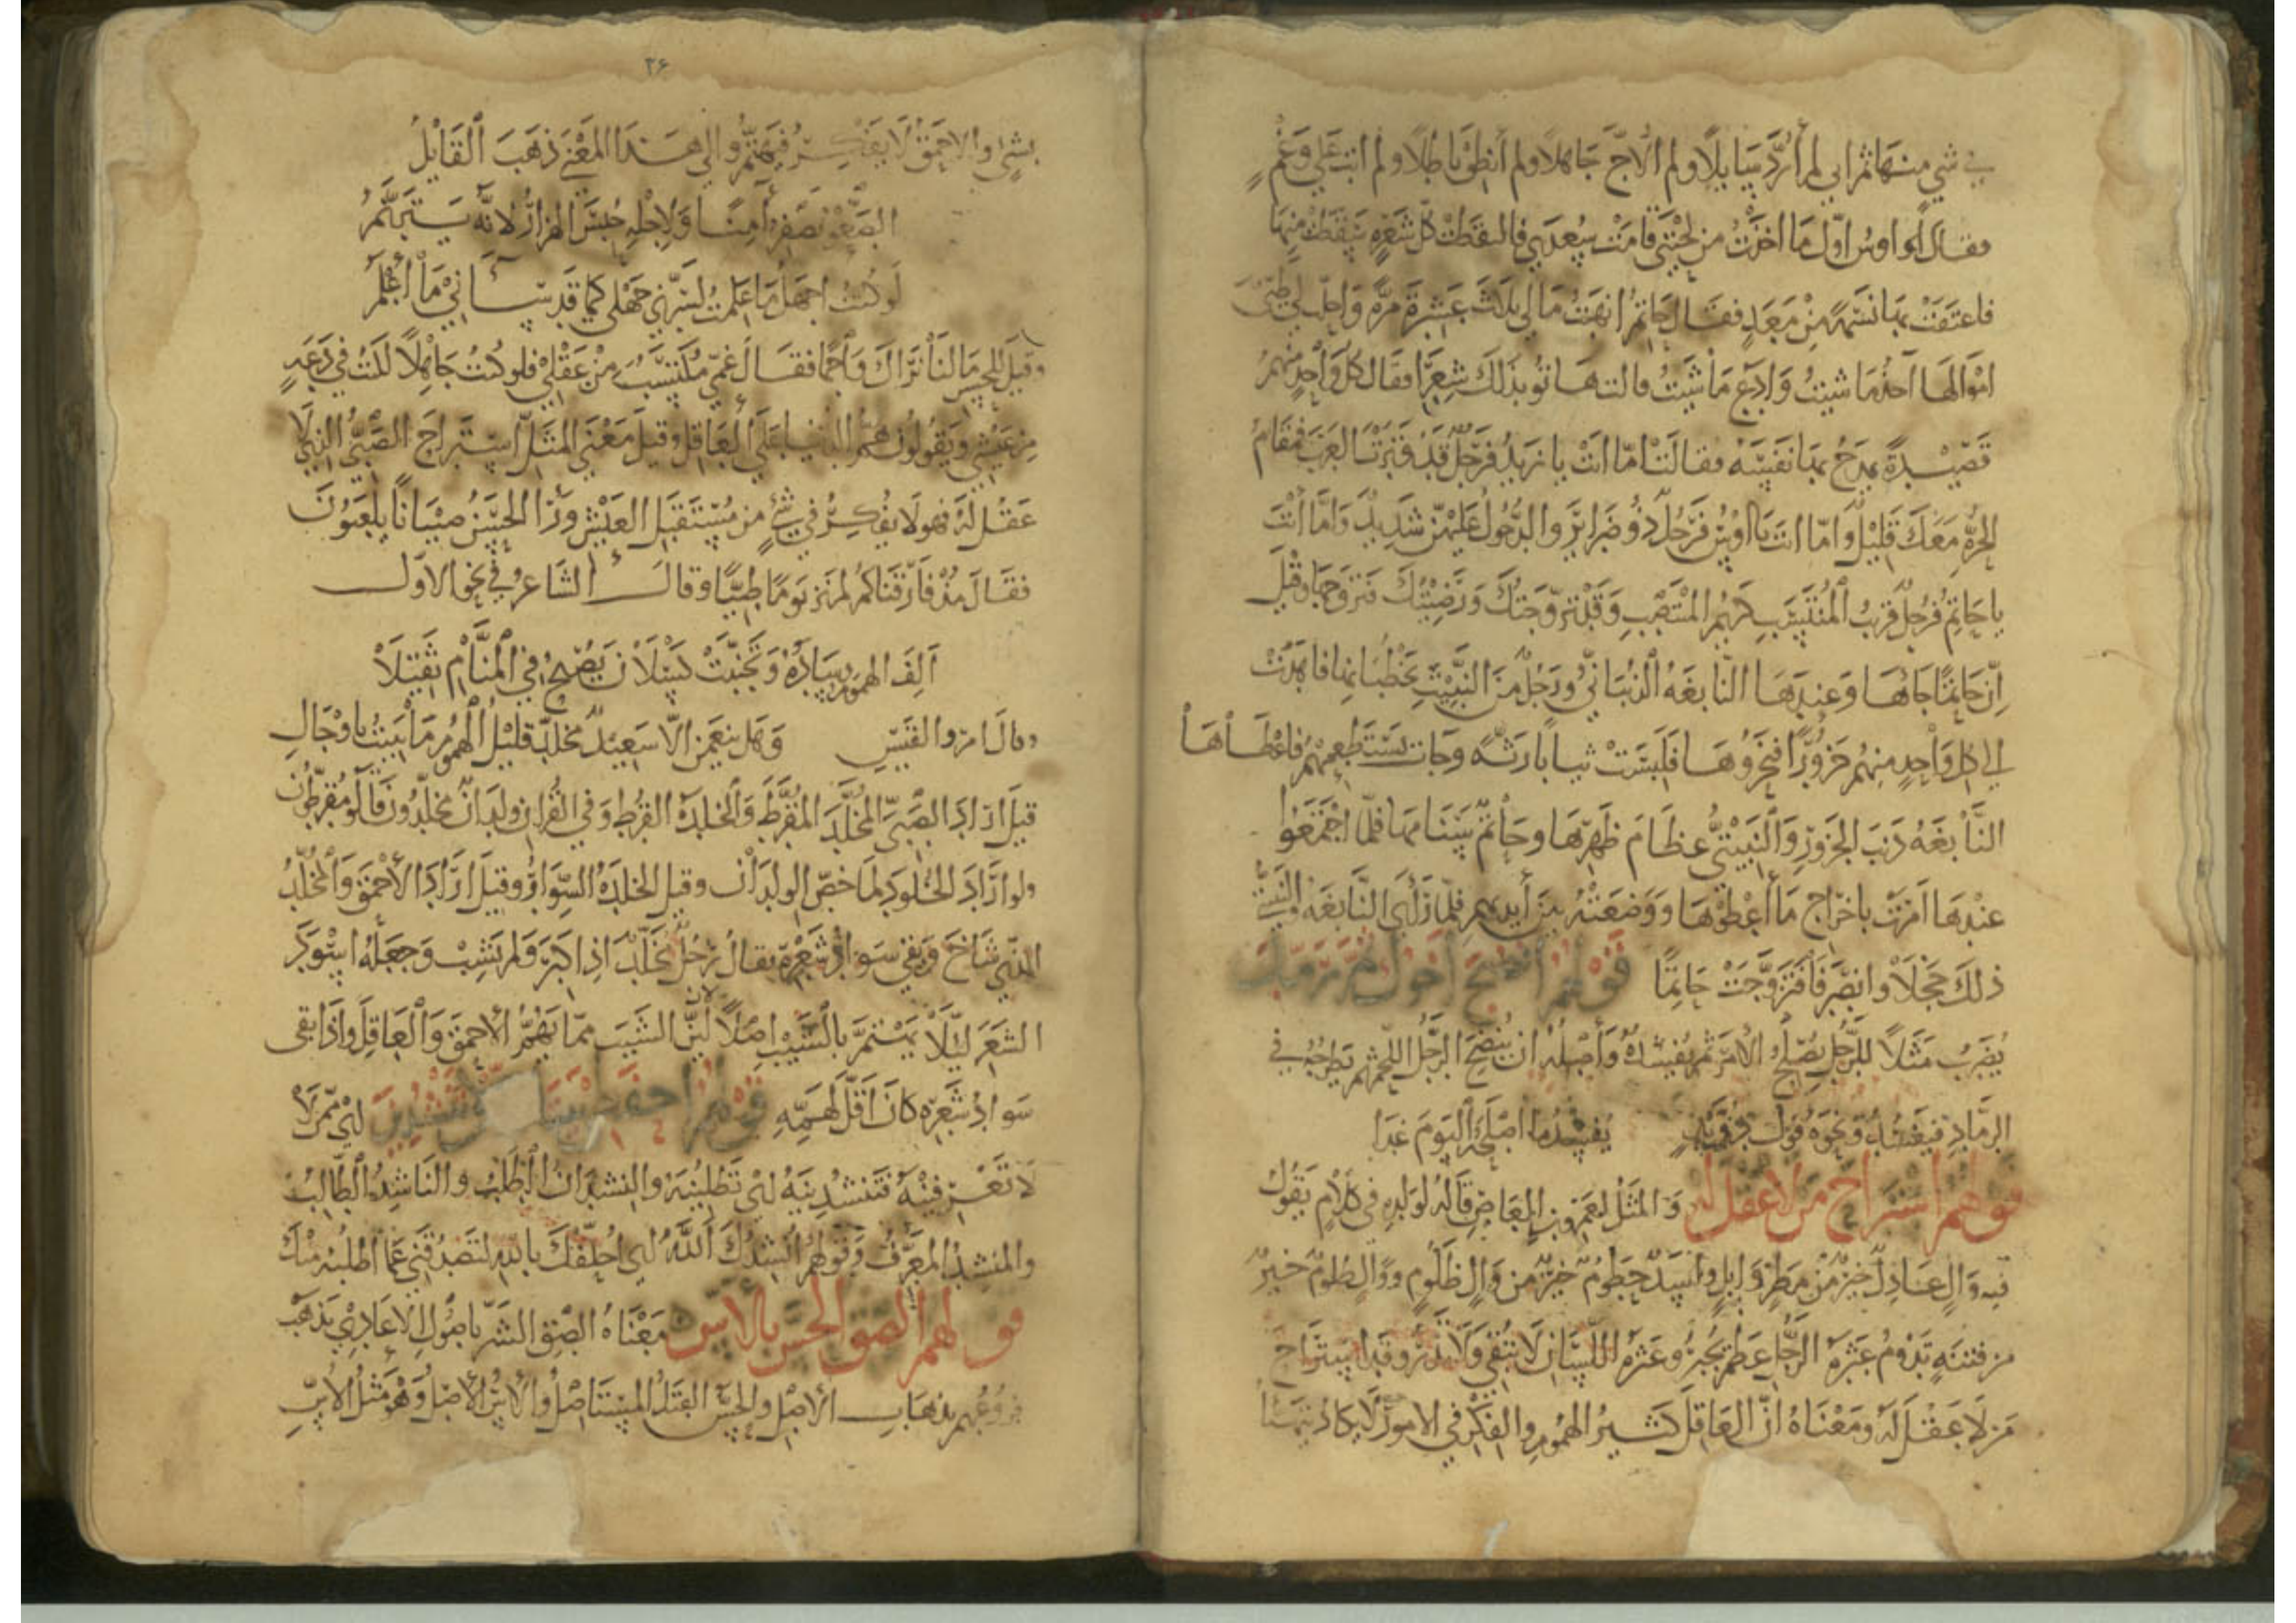 في شي منها ثم اني لم أرد سايلا ولم ألاج جاهلا ولم أنطق باطلا ولم ابت على وغم
فقال أوس اول ما اخذت من لحيتي قامت سعدى فالتقطت كل شعرة سقطت منها
فاعتقت بها نسمة من معد فقال حاتم انهبت مالي ثلاث عشرة مرة واحلت لي طيئ
اموالها آخذ ما شيت وادع ما شيت قالت هاتوا بذلك شعرا فقال كل واحد منهم
قصيدة يمدح بها نفسه فقالت اما انت يا زيد فرجل قد وترت العرب فمقام
الحرة معك قليل واما انت يا اوس فرجل ذو ضراير والدخول عليهن شديد واما انت
يا حاتم فرجل قريب المنتسب كريم المنتصب وقد تزوجتك ورضيتك فتزوجها وقيل
إن حاتما جاها وعندها النابغة الذبياني ورجل من النبيت يخطبانها فاهدت
الى كل واحد منهم جزورا فنحروها فلبست ثيابا رثة وجات تستطعمهم فاعطاها
النابغة ذنب الجزور والنبيتي عظام ظهرها وحاتم سنامها فلما اجتمعوا
عندها امرت باخراج ما أعطوها ووضعته بين أيديهم فلما رأى النابغة والنبيتي
ذلك خجلا وانصرفا فتزوجت حاتما قولهم أنضج أخوك ثم رمد
يضرب مثلا للرجل يصلح الأمر ثم يفسده وأصله ان ينضج الرجل اللحم ثم يطرحه في
الرماد فيفسده ونحوه قول يفسد ما أصلح اليوم غدا
قولهم استراح من لا عقل له والمثل لعمرو بن العاص قاله لولده في كلام يقول
فيه وال عادل خير من مطر وابل واسد حطوم خير من وال ظلوم ووال ظلوم خير
من فتنة تدوم عثرة الرجل عظم يجبر وعثرة اللسان لا تبقي ولا تذر وقد استراح
من لا عقل له ومعناه ان العاقل كثير الهموم والفكر في الامور لا يكاد يتهنا
٣۶
بشي والاحمق لا يفكر فيهتم والى هذا المعنى ذهب القايل
الصعو يصفر آمنا ولاجله حبس الهزار لانه يترنم
لو كنت اجهل ما علمت لسرني جهلي كما قد ساني ما أعلم
وقيل للحسن مالنا نراك واجما فقال غمي مكتسب من عقلي فلو كنت جاهلا لكنت في دعة
من عيشي ويقولون هم الدنيا على العاقل وقيل معنى المثل استراح الصبي الذي لا
عقل له فهو لا يفكر في شي من مستقبل العيش ورأى الحسن صبيانا يلعبون
فقال مذ فارقناكم لم نر يوما طيبا وقال الشاعر في نحو الاول
ألف الهموم وساده وتجنبت كسلان يصبح في المنام ثقيلا
وقال امرؤ القيس وهل ينعمن الا سعيد مخلد قليل الهموم ما يبيت باوجال
قيل اراد الصبي المخلد المقرط والخلدة القرط وفي القرآن ولدان مخلدون قالوا مقرطون
ولو اراد الخلود لما خص الولدان وقيل الخلدة السوار وقيل أراد الأحمق والمخلد
الذي شاخ وبقي سواد شعره يقال رجل مخلد اذا كبر ولم يشب وجعله اسود
الشعر ليلا يستمر بالشيب اصلا لان الشيب مما يهم الأحمق والعاقل واذا بقي
سواد شعره كان أقل لهمه قولهم لا تنشدين اي مما لا
لا تعرفينه فتنشدينه اي تطلبينه والنشدان الطلب والناشد الطالب
والمنشد المعرف وقولهم انشدك الله اي احلفك بالله لتصدقني عما اطلبه منك
قولهم الصق الحس بالأس معناه الصق الشر باصول الاعادي يذهب
فروعهم بذهاب الاصل والحس القتل المستاصل والأس الأصل وهو مثل الأس